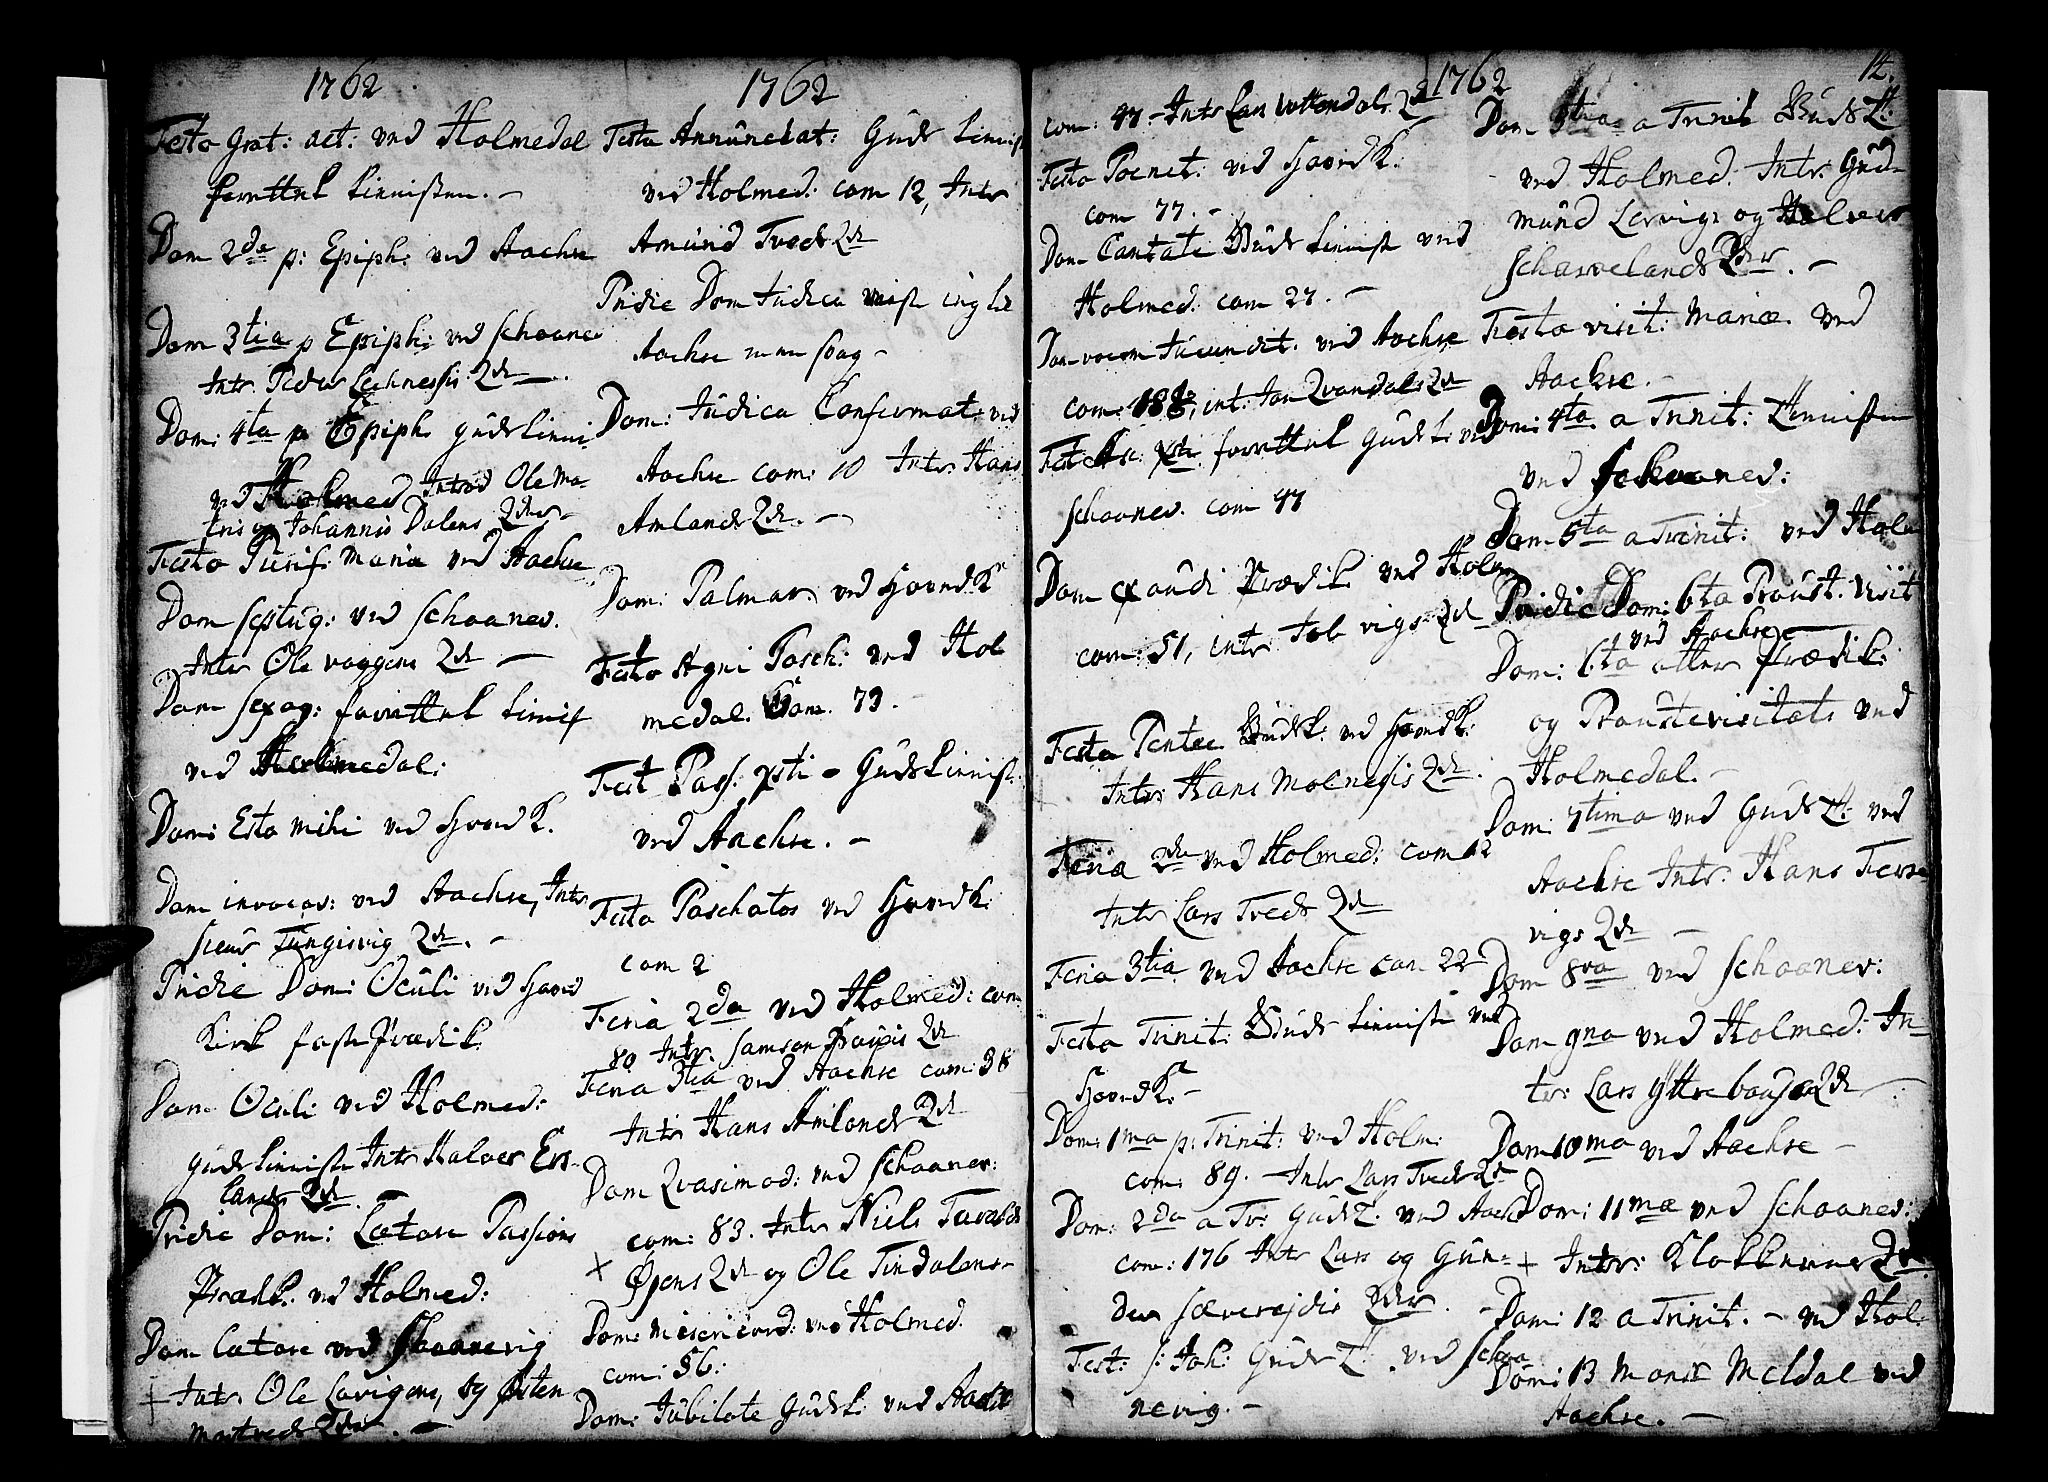 1762
Festo Grat: act: ved Holmedal
forrettet tienisten. -
Dom 2da p: Epiph: ved Aachre
Dom 3tia p Epiph: ved Schaanev
Intr. Peder Lechnessis 2de -
Dom: 4ta p Epiph. Gudstieni
ved Holmed Introd Ole Ma-
tris og Johannis Dalens 2der
Festo Purif: Mariæ ved Aachre
Dom Septug: ved Schaanev.
Intr Ole vaagens 2de -
Dom Sexag: forrettet tienist
ved Holmedal:
Dom: Esto mihi ved Hovedk.
Dom invocav: ved Aachre, Intr
Siur Tungisvig 2de. -
Pridie Dom: Oculi ved Hoved
Kirk fastePrædik.
Dom Oculi ved Holmed:
Gudstieniste Intr Halvor Ers-
lands 2de.
Pridie Dom: Lætare Passions
Prædk. ved Holmed:
Dom Lætare ved Skaanevig
+ Intr. Ole Lavigens, og Østen
Mortveds 2der. -
1762
Festo Annunchat: Guds tienist
ved Holmed: com 12, Intr
Amund Tveds 2de
Pridie Dom Judica
Aachre
Dom: Judica Confirmat: ved
Aachre com: 10 Intr. Hans
Amlands 2de. -
Dom: Palmar. ved Hovedk
Festo Agni Pasch: ved Hol
medal. Com. 73.
Fest Pass: Xsti - Gudstienist:
ved Aachre. -
Festo Paschatos ved Hovedk.
com 2
Feria 2da ved Holmed: com
80 Intr. Samson 2de
Feria 3tia ved Aachre com: 38
Intr Hans Amlands 2de
Dom Qvasimod: ved Schaanev:
com: 83. Intr Niels Taralds
+ Øjens 2de og Ole Tindalens -
Dom: Misericord: ved Holmed.
com: 56:
Dom: Jubilate Gudst: ved Aachr
1762
com: 47 - Intr Lars Uttendals 2de
Festo Poenit: ved Hovedk.
com 77. -
Dom Cantate Gudstienist ved
Holmed: com 27. -
Dom vocem Jucundit. ved Aachre
com: 188, int: Jon Qvandals 2de
Fest Asc: Xsti forrettet Gudst: ved
Schaanev. com 47
Dom Exaudi Prædik. ved Holm
com: 51, intr: 2de
Festo Pentec Gudst: ved Hovedk:
Intr: Hans Molnessis 2de.
Feria 2da ved Holmed: com 12
Intr Lars Tveds 2de
Feria 3tia ved Aachre com 22
Festo Trinit: Guds tieniste ved
Hovedk. -
Dom: 1ma p: Trinit: ved Holm:
com: 89. - Intr Lars Tveds 2de
Dom: 2da a Tr: Gudst: ved Aach
com: 176 Intr Lars og Gun-
der Sæverejdis 2der.
Fest: S: Joh: Gudst: ved Schaa
nevig. -
14.
Dom 3tia a Trinit Gudst:
ved Holmed. Intr. Gud-
mund Lervigs og Halvor
Schaarelands 2der. -
Festo visit: Mariæ. ved
Aachre. -
Dom: 4ta. a Trinit: tienisten
ved Schaanev:
Dom 5ta a Trinit: ved Holm
Pridie Dom: 6ta Proust. visit
ved Aachre -
Dom: 6ta atter Prædik:
og Proustevisitats ved
Holmedal. -
Dom: 7tima ved Gudst: ved
Aachre Intr. Hans Ferre-
vigs 2de -
Dom 8va ved Schaanev:
Dom 9na ved Holmed: In-
tr: Lars Yttrebousis 2de
Dom 10ma ved Aachre -
Dom: 11mæ ved Schaanev:
+ Intr: Klokkerens 2de.
Dom: 12 a Trinit. - ved Hol.
Dom: 13 Monsr Meldal ved
Aachre. -